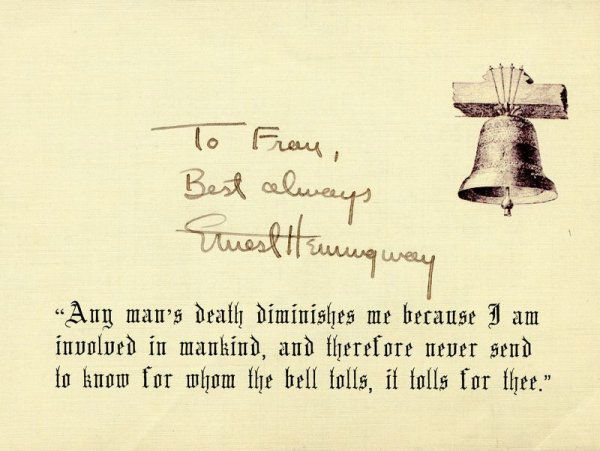 To Fran,
Best always
Ernest Hemingway
“Any man’s death diminishes me because I am
involved in mankind, and therefore never send
to know for whom the bell tolls, it tolls for thee.”